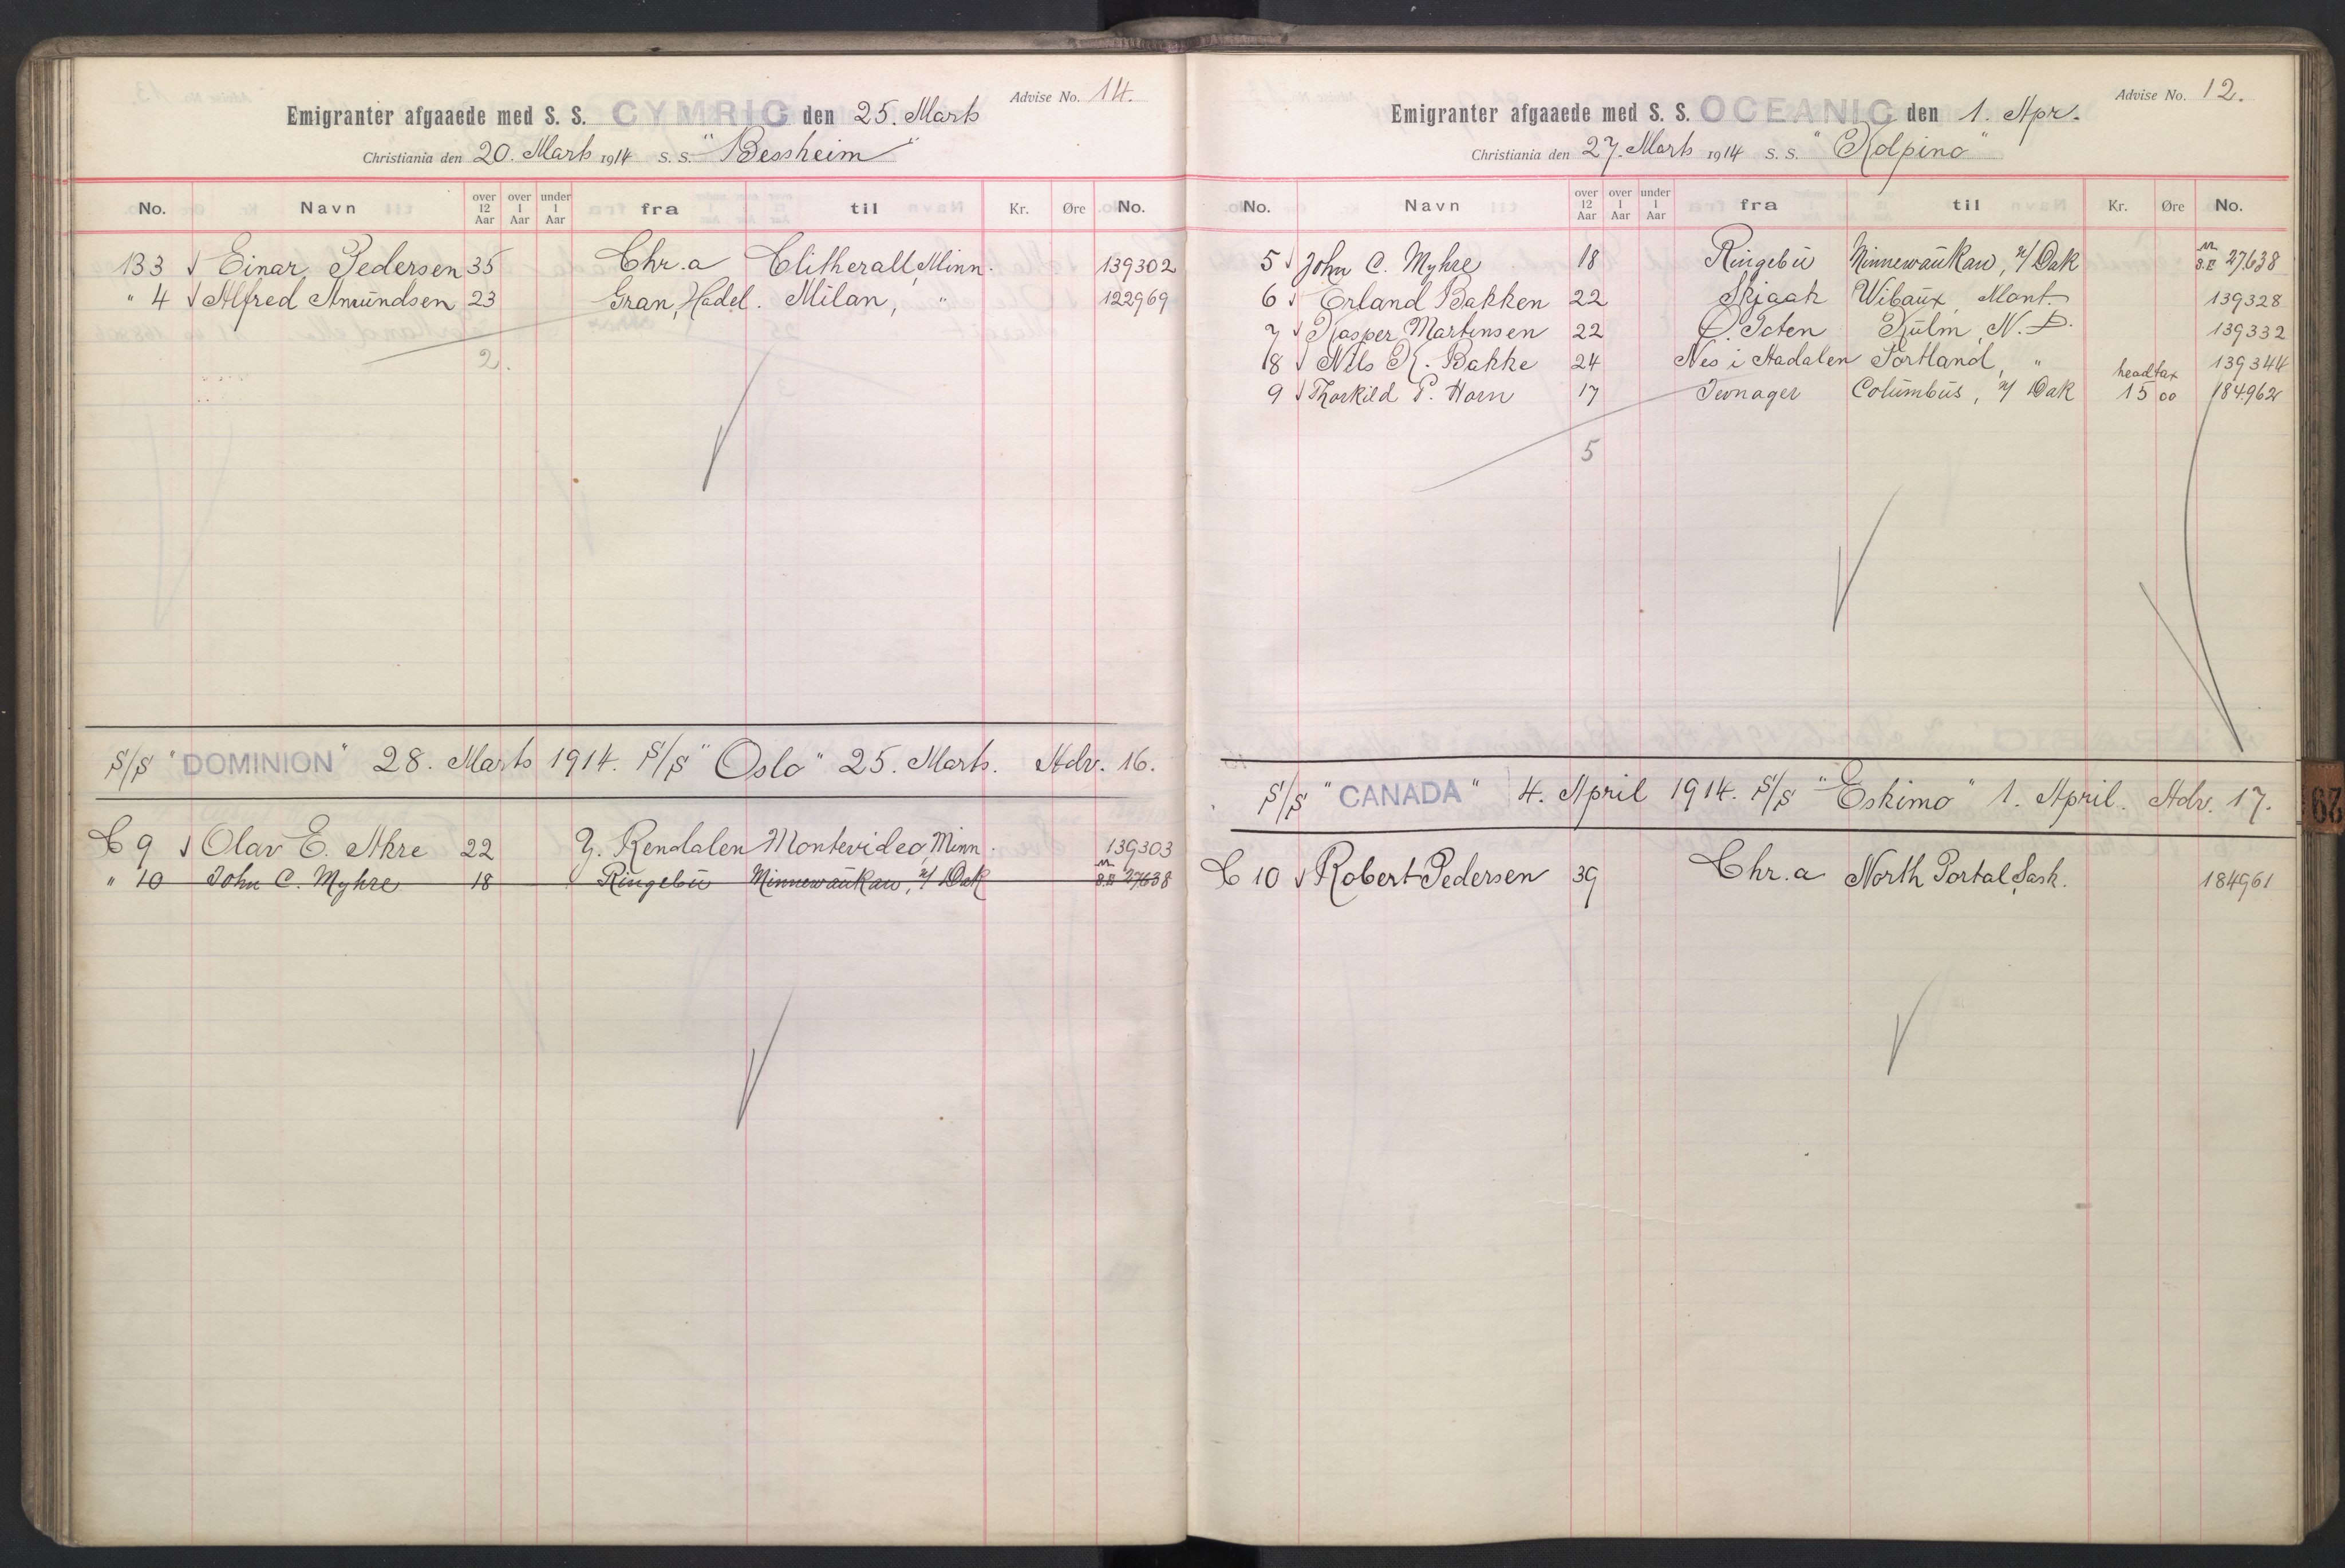 Advise No. 14.
Emigranter afgaaede med S. S. CYMRIC den 25. Marts
Christiania den 20. Marts 1914 S. S. "Bessheim"
No. Navn over 12 Aar over 1 Aar under 1 Aar fra til Kr. Øre No.
133 Einar Pedersen 35 Chr.a Clitherall, Minn. 139302
" 4 Alfred Amundsen 23 Gran, Hadel. Milan, " 122969
2.
S/S "DOMINION" 28. Marts 1914. S/S "Oslo" 25. Marts. Adv. 16.
C 9 Olav E. Akre 22 Y. Rendalen Montevideo, Minn. 139303
" 10 John C. Myhre 18 Ringebu Minnewaukan, N/Dak 27638
Advise No. 12.
Emigranter afgaaede med S. S. OCEANIC den 1. Apr.
Christiania den 27. Marts 1914 S. S. "Kolpino"
No. Navn over 12 Aar over 1 Aar under 1 Aar fra til Kr. Øre No.
5 John C. Myhre 18 Ringebu Minnewaukan, N/Dak 27638
6 Erland Bakken 22 Skjaak Wibaux, Mont. 139328
7 Kasper Martinsen 22 Ø. Toten Kulm, N. D. 139332
8 Nils K. Bakke 24 Nes i Aadalen Portland, " 139344
9 Thorkild P. Horn 17 Jevnager Columbus, N/Dak headtax 15 00 184962
5
S/S "CANADA" 4. April 1914. S/S "Eskimo" 1. April. Adv. 17.
C 10 Robert Pedersen 39 Chr.a North Portal, Sask. 184961